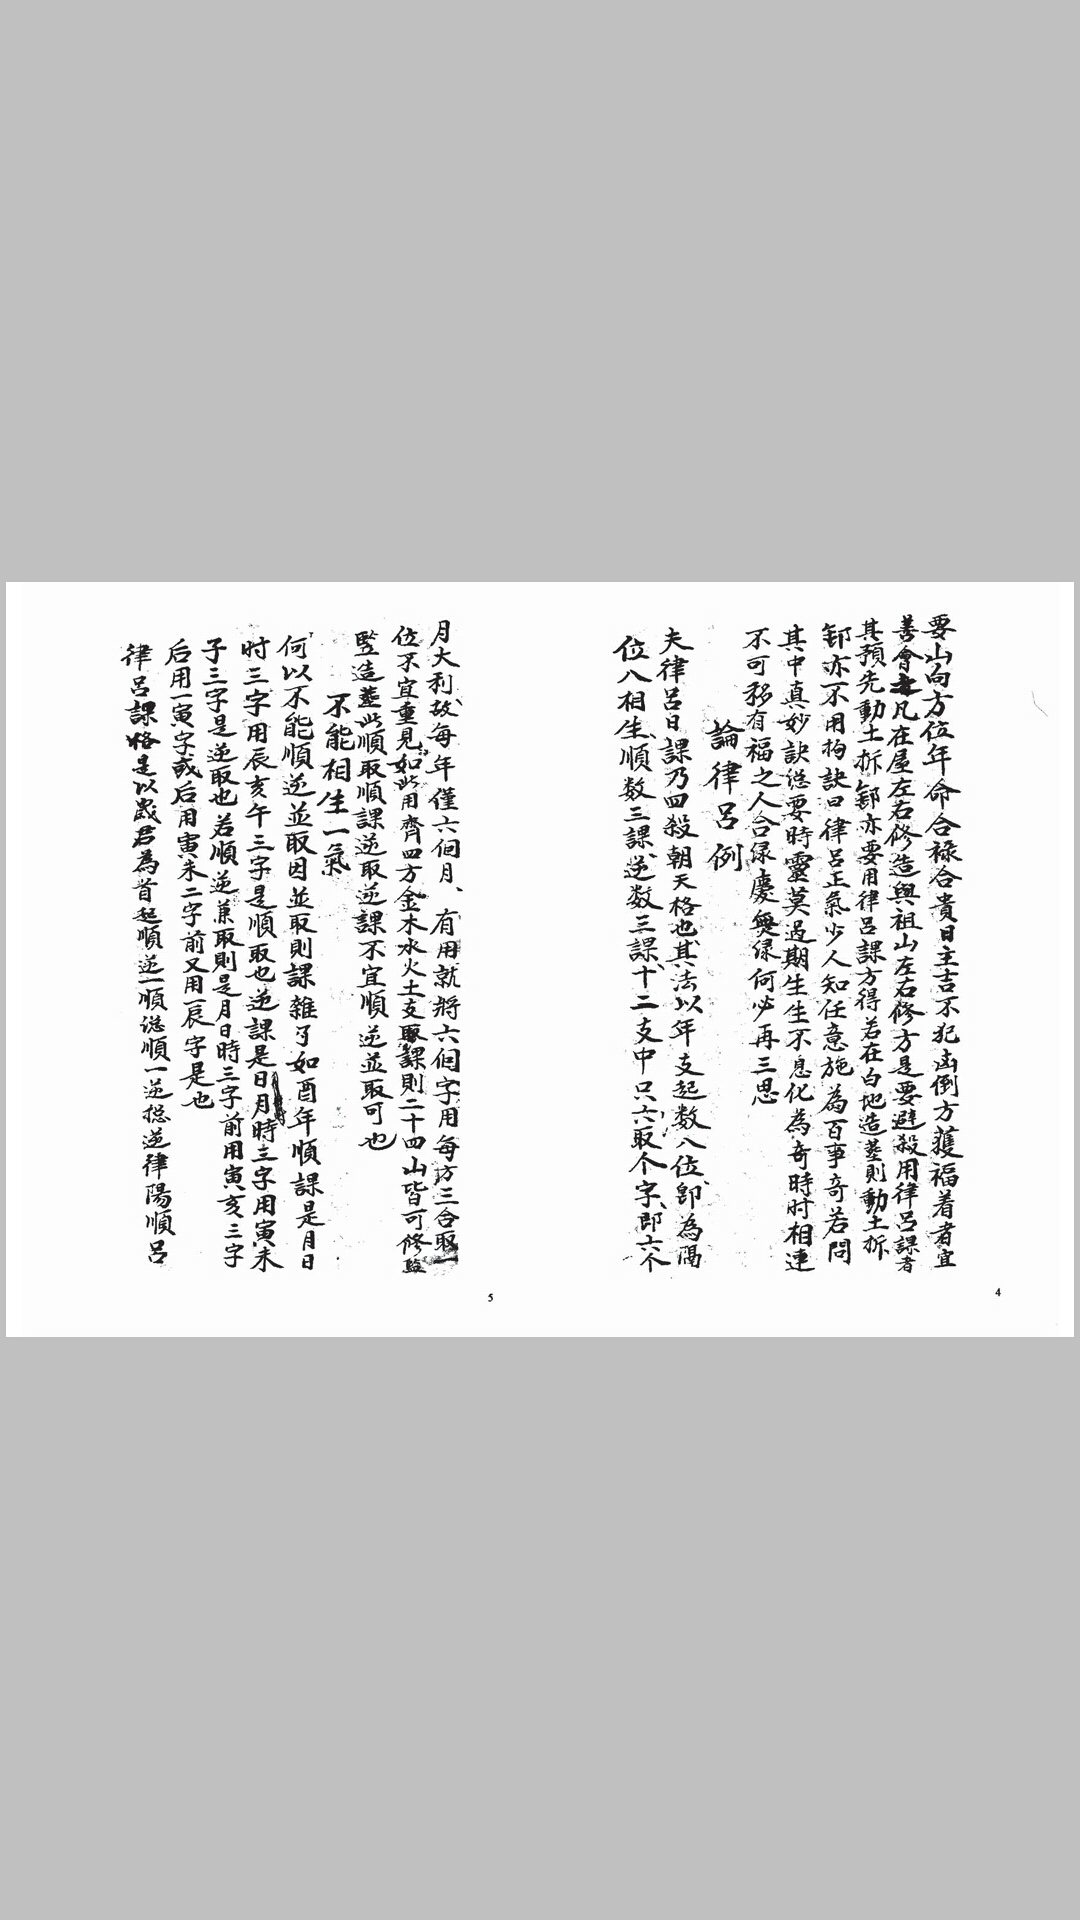 要山向方位年命合祿合貴日主吉不犯凶倒方蓫福着者宜
善會者凡在屋左右修造與祖山左右修方是要避殺用律呂課者
其預先動土拆卸亦要用律呂課方得若在白地造塟則動土拆
卸亦不用拘訣曰律呂正氣少人知任意施為百事奇若問
其中真妙訣総要時靈莫過期生生不息化為奇時时相連
不可移有福之人合彔慶無彔何必再三思
論律呂例
夫律呂日課乃四殺朝天格也其法以年支起数八位卽為隔
位八相生順数三課逆数三課十二支中只六取个字即六个
4
月大利故每年僅六個月有用就將六個字用每方三合取一
位不宜重見如此用齊四方金木水火土支取課則二十四山皆可修監
竪造塟此順取順課逆取逆課不宜順逆並取可也
不能相生一氣
何以不能順逆並取因並取則課雜了如酉年順課是月日
时三字用辰亥午三字是順取也逆課是日月時三字用寅未
子三字是逆取也若順逆兼取則是月日時三字前用寅亥三字
后用一寅字或后用寅未二字前又用一辰字是也
律呂課格是以歲君為首起順逆一順総順一逆総逆律陽順呂
5